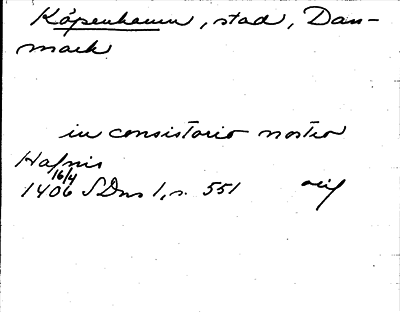 Köpenhamn, stad, Dan-
mark
in consistorio nostro
Hafnis
16/4
1406 SDns 1, s. 551 orig